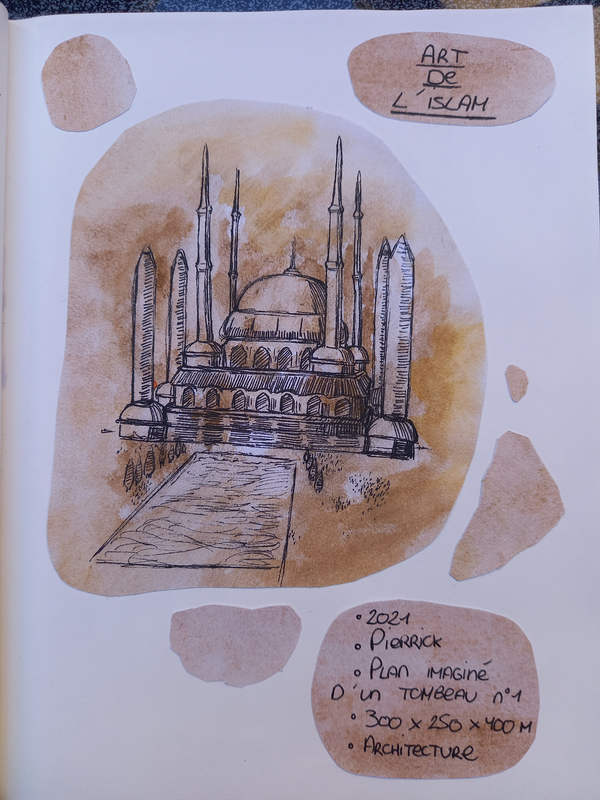 ART
DE
L'ISLAM
• 2021
• PiERRiCK
• PLAN iMAGiNÉ
D'UN TOMBEAU n°1
• 300 x 250 x 400 M
• ARCHiTECTURE